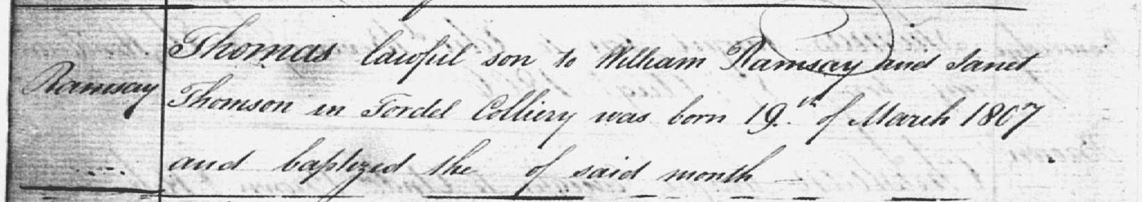 Thomas lawful son to William Ramsay and Janet
Ramsay
Thomson in Fordel Colliery was born 19.th of March 1807
and baptized the of said month